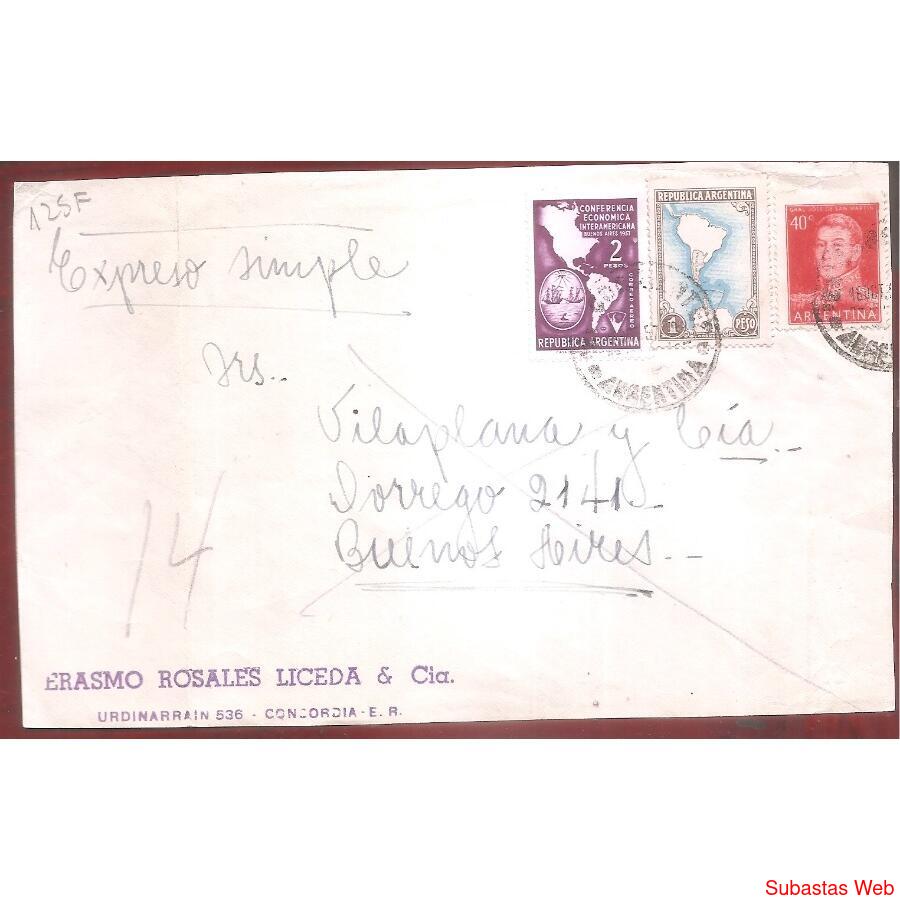 125F
Expreso simple
CONFERENCIA
ECONOMICA
INTERAMERICANA
BUENOS AIRES 1957
2
PESOS
REPUBLICA ARGENTINA
REPUBLICA ARGENTINA
1 PESO
GRAL. JOSE DE SAN MARTIN
40c
ARGENTINA
ARGENTINA
Srs..
Vilaplana y Cía..
Dorrego 2141.
Buenos Aires.--
14
ERASMO ROSALES LICEDA & Cia.
URDINARRAIN 536 - CONCORDIA - E. R.
Subastas Web